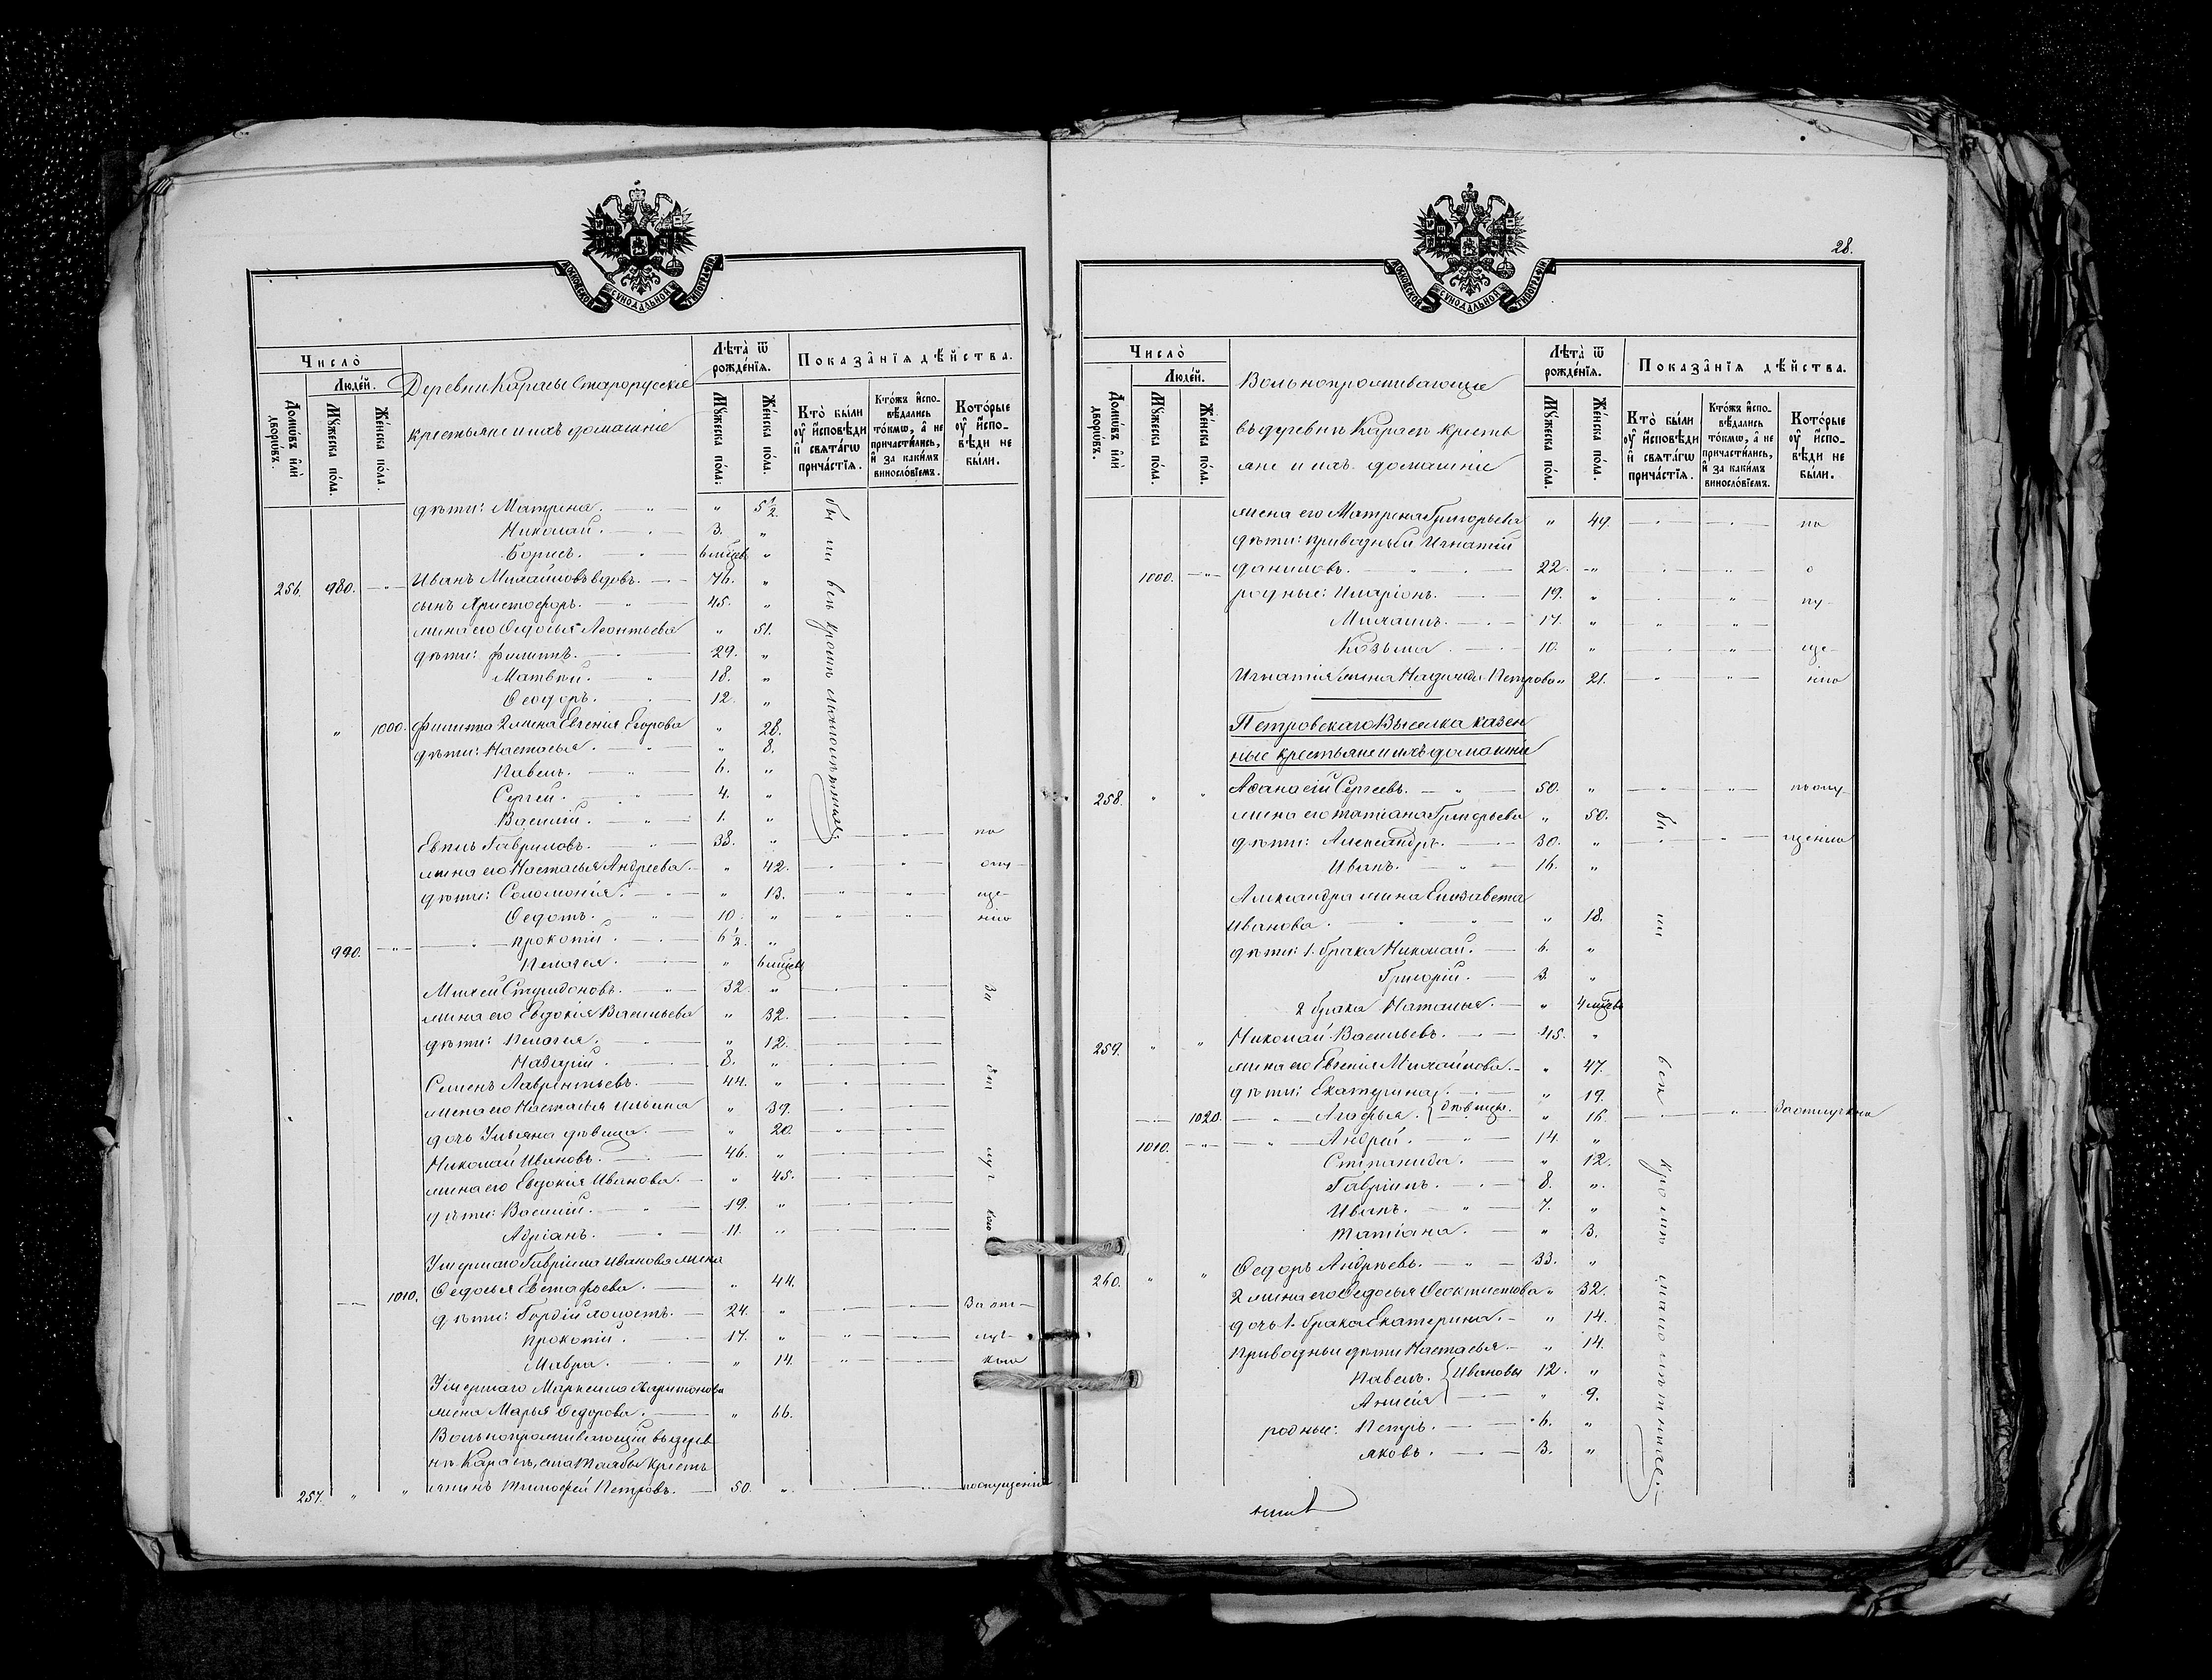 МОСКОВСКОЙ СУНОДАЛЬНОЙ ТИПОГРАФІИ
Число̀
Людей.
Домѡвъ и҆лѝ дворѡвъ.
Мꙋжеска по́ла.
Же́нска по́ла.
Деревни Карасы Старорусскіе
крестьяне и ихъ домашніе
Лѣта̀ ѿ рожде́нїѧ.
Мꙋжеска по́ла.
Же́нска по́ла.
Показа̑нїѧ дѣ́йства.
Кто̀ бы́ли ᲂу҆ и҆сповѣди и҆ свѧта́гѡ прича́стїѧ.
Кто́жъ и҆спо-
вѣдались
то́кмѡ, а҆ не
причасти́лись,
и҆ за каки́мъ
винословїемъ.
Кото́рые
ᲂу҆ и҆спо-
вѣди не
бы́ли.
дѣти: Матрена. " 5 1/2.
Николай. 3. "
Борисъ. 6 мѣсяц. "
256. 980. Иванъ Михайловъ вдовъ. 76. "
сынъ Христофоръ. 45. "
жена его Ѳедосья Леонтьева " 51.
дѣти: Филиппъ. 29. "
Матвѣй. 18. "
Ѳеодоръ. 12. "
" 1000. Филиппа 2 жена Евгенія Егорова " 28.
дѣти: Настасья. " 8.
Павелъ. 6. "
Сергѣй. 4. "
Василій. 1. "
бы ли всѣ кромѣ малолѣтнихъ
Евплъ Гавриловъ. 38. " по
жена его Настасья Андреева. " 42. опу
дѣти: Соломонія. " 13. ще-
Ѳедотъ. 10. " нію
990. Прокопій. 6 1/2. "
Пелагея. " 6 мѣсяц
Михей Спиридоновъ. 32. " За
жена его Евдокія Васильева " 32.
дѣти: Пелагея. " 12.
Назарій. 8. "
Семенъ Лаврентьевъ. 44. " от
жена его Настасья Ильина " 39.
дочь Ульяна дѣвица. " 20.
Николай Ивановъ. 46. " лу
жена его Евдокія Иванова. " 45.
дѣти: Василій. 19. " кою
Адріанъ. 11. "
Умершаго Гавріила Иванова жена
1010. Ѳедосья Евстафьева. " 44.
дѣти: Гордій холостъ. 24. " За от-
Прокопій. 17. " луч-
Мавра. " 14. кою
Умершаго Маркелла Харитонова
жена Марья Ѳедорова. " 66.
Вольнопроживающій въ дерев
нѣ Карасѣ, крестъ
257. " " янинъ Тимофей Петровъ. 50. " по опущенію
28.
МОСКОВСКОЙ СУНОДАЛЬНОЙ ТИПОГРАФІИ
Число̀
Людей.
Домѡвъ и҆лѝ дворѡвъ.
Мꙋжеска по́ла.
Же́нска по́ла.
Вольнопроживающіе
въ деревнѣ Карасѣ кресть
яне и ихъ домашніе
Лѣта̀ ѿ рожде́нїѧ.
Мꙋжеска по́ла.
Же́нска по́ла.
Показа̑нїѧ дѣ́йства.
Кто̀ бы́ли ᲂу҆ и҆сповѣди и҆ свѧта́гѡ прича́стїѧ.
Кто́жъ и҆спо-
вѣдались
то́кмѡ, а҆ не
причасти́лись,
и҆ за каки́мъ
винословїемъ.
Кото́рые
ᲂу҆ и҆спо-
вѣди не
бы́ли.
жена его Матрена Григорьева " 49. по
дѣти: приводный Игнатій
1000. Даниловъ. 22. " о
родные: Иларіонъ. 19. " пу-
Михаилъ. 17. "
Козьма 10. " ще-
Игнатія жена Надежда Петрова " 21. нію
Петровскаго Выселка казен
ные крестьяне и ихъ домашніе
258. " " Аѳанасій Сергеевъ. 50. " по опу-
жена его Татіана Григорьева " 50.
дѣти: Александръ. 30. " щенію
Иванъ. 16. "
Александра жена Елизавета
Иванова. " 18.
дѣти: 1. брака Николай. 6. "
Григорій. 3. "
2 брака Наталья. " 4 мѣсяц
259. " " Николай Васильевъ. 45. "
жена его Евгенія Михайлова. " 47.
дѣти: Екатерина. " 19.
1020. Агафья. дѣвицы. " 16. За отлучкою
1010. Андрей. 14. "
Степанида. " 12.
Гавріилъ. 8. "
Иванъ. 7. "
Татіана. " 3.
260. " " Ѳедоръ Андреевъ. 33. "
2 жена его Ѳедосья Ѳеоктистова " 32.
дочь 1. брака Екатерина. " 14.
Приводныи дѣти Настасья. " 14.
Павелъ. Ивановы 12. "
Анисія " 9.
родные: Петръ. 6. "
Яковъ. 3. "
бы ли всѣ кромѣ малолѣтнихъ